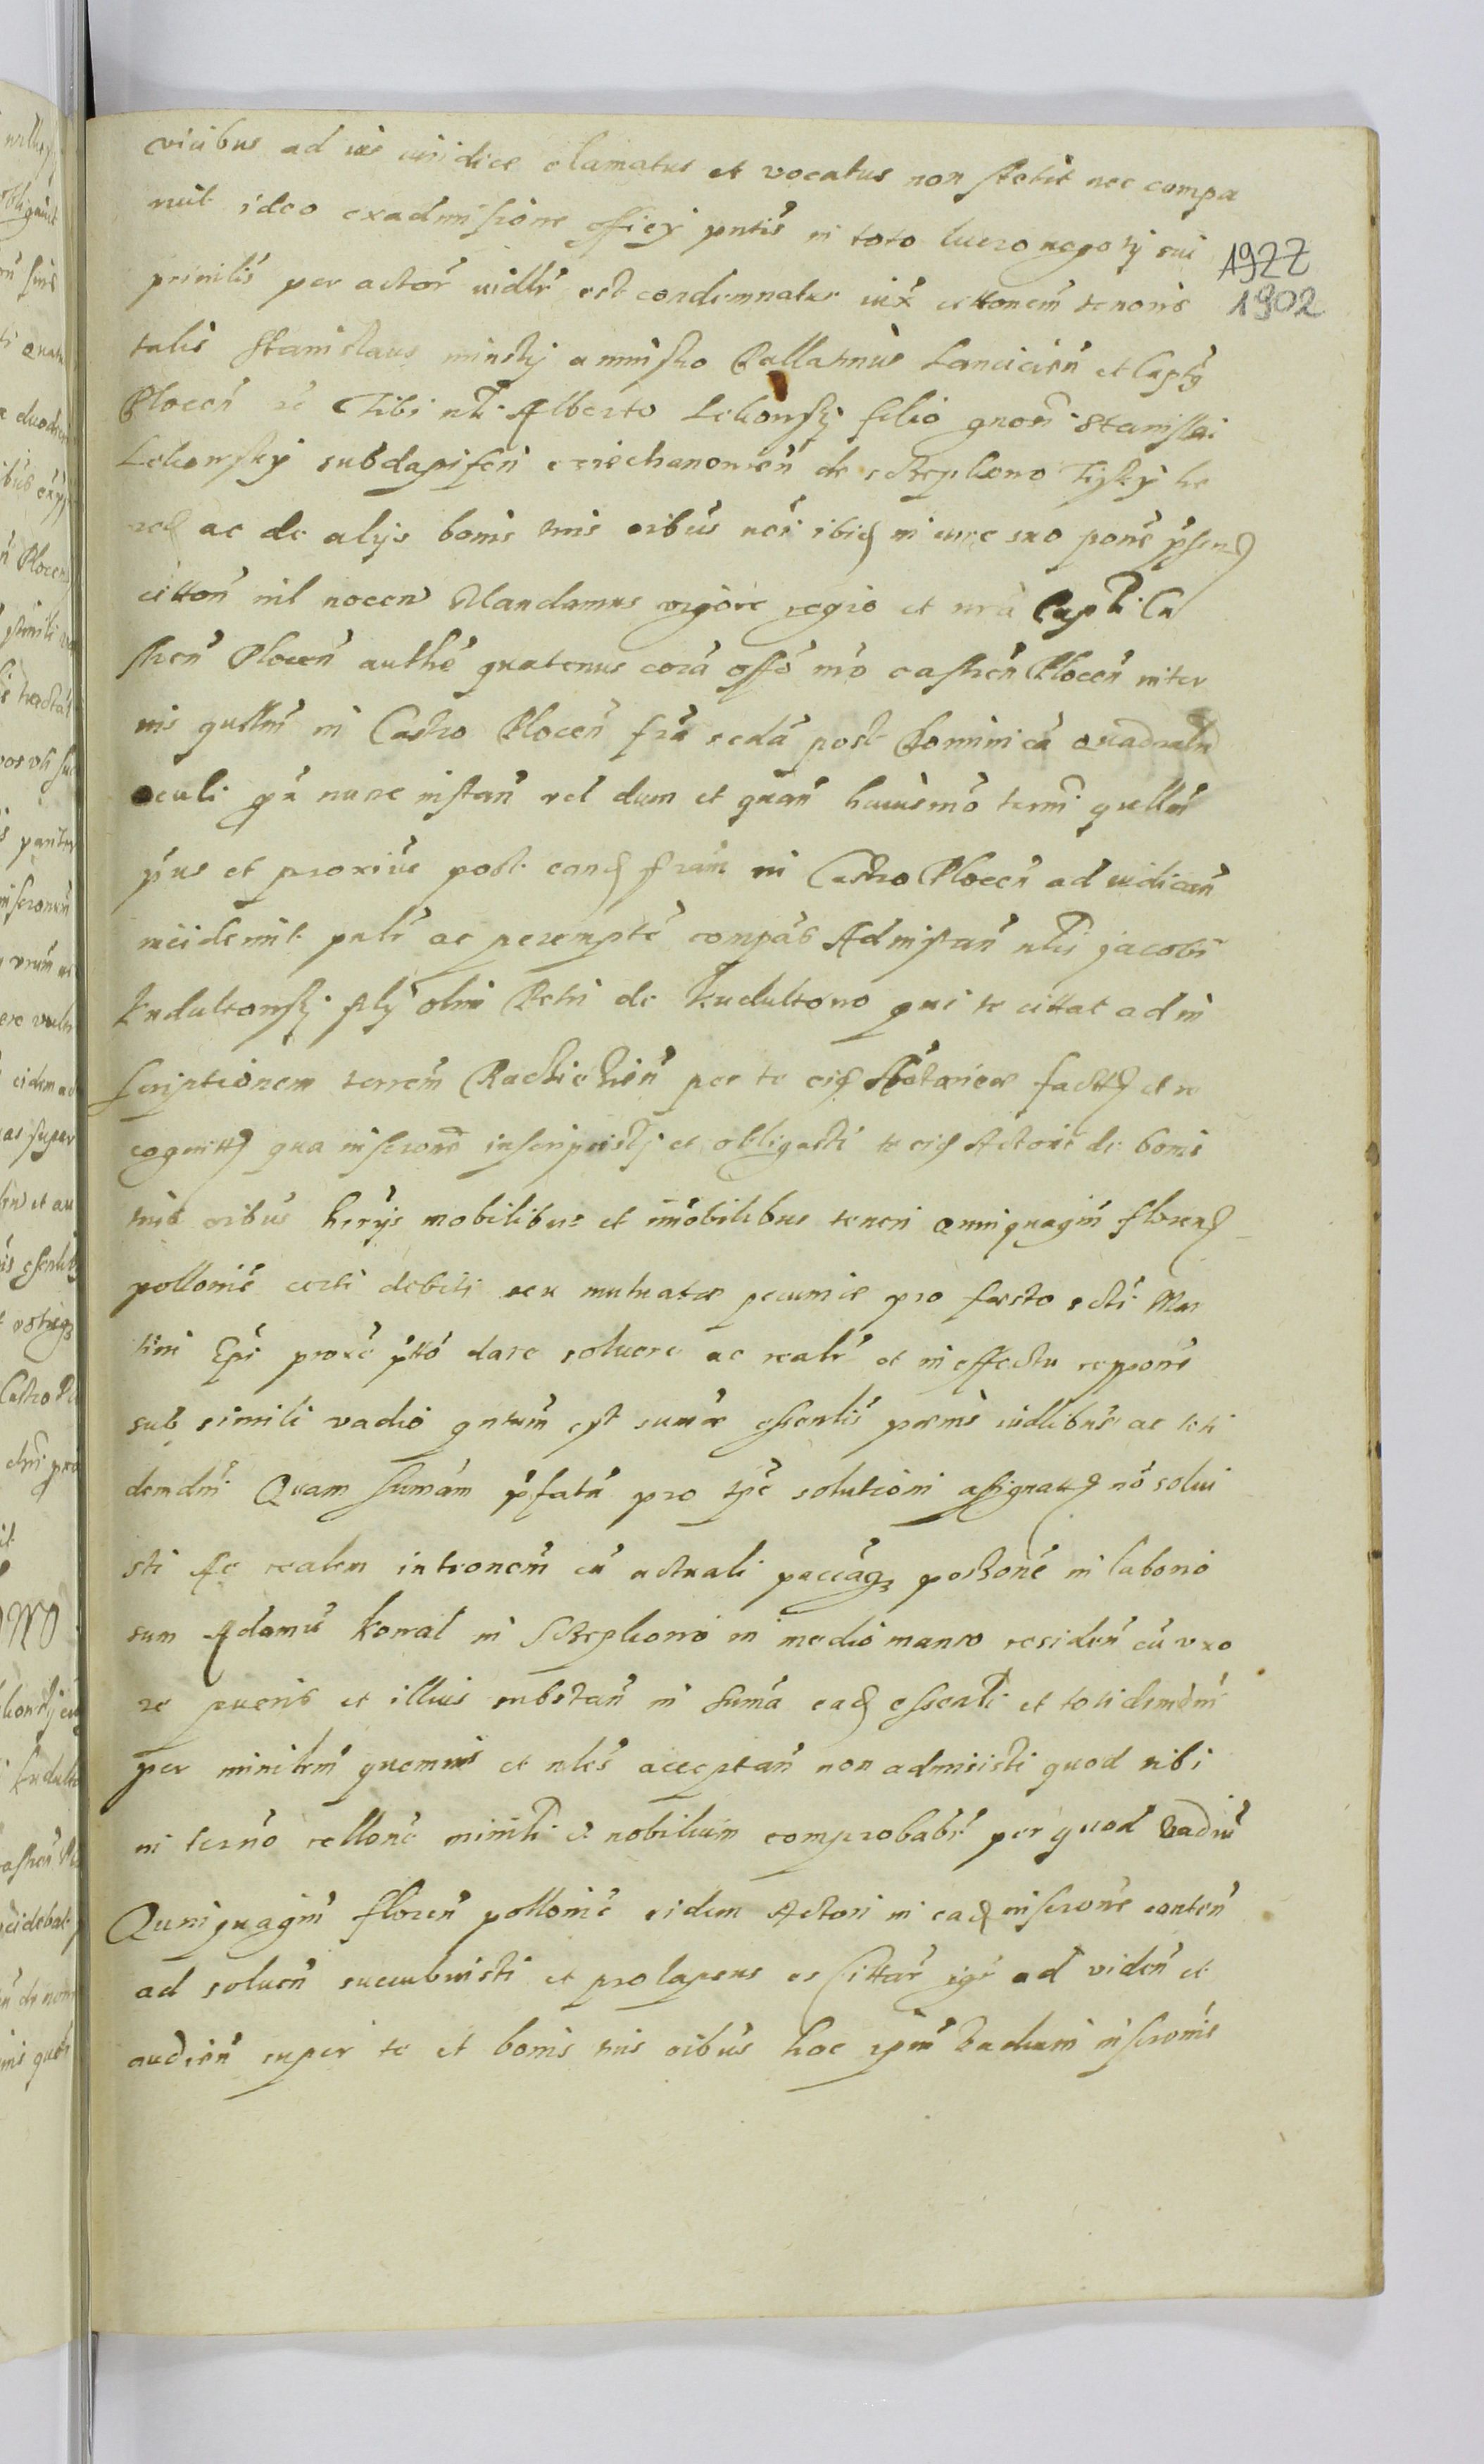 vicibus ad ius iuridice clamatus et vocatus non stetit nec compa
ruit ideo ex admissione officy pntis in toto lucro negoty sui
principalis per actor iudlr est condemnatus iux cittonem tenoris
talis Stanislaus minsky a minsko Pallatinus Lancicien et Capts
Plocen Tibi nli Alberto Lelowsky filio gnosi Stanislai
Lelowsky subdapiferi cziechanowien de
red ac de alys bonis tuis oibus nei ibid in iure suo pone psen
citton nil nocen Mandamus vigore regio et nra Captli Ca
stren Plocen authe quatenus cora offo nro castren Plocen in ter
nis qullni in Castro Plocen fra scda post Dominica Quadraln
oculi pn nunc instan vel dum et quan huiusmo termi qullni
pus et proxius post eand fram in Castro Plocen ad iudican
inciderint pnlr ac perempte compas Ad instan nlis Jacobi
Kudultowsky fily olim Petri de Kudultowo qui te cittat ad in
scriptionem terrem Raczieszien per te eid Actorice fact et re
cognitt qua inscrone inscripsisti et obligasti te eid Actori de bonis
tuis oibus herys mobilibus et imobilibus teneri quinquagin floren
pollonic certi debiti seu mutuatae pecuniae pro festo scti Mar
tini Epi proxe ptto dare soluere ac realr et in effectu reppone
sub simili vadio qntum est summa essentlis paenis iudlibus ac toti
demdm Quam sumam pfatu pro tpe solutioni assignatt no solui
sti Ac realem intronem cu actuali paccag possone in laborio
sum Adamu Kowal in in medio manso residen cu vxo
re pueris et illius substan in suma ead essentli et totidemdm
per ministrm quemuis et nles acceptan non admisisti quod tibi
in termo rellone ministli et nobilium comprobabr per quod Vadiu
Quinquagin floren pollonic eidem Actori in ead inscrone conten
ad soluen succubuisti et prolapsus es Cittar igr ad viden et
audien super te et bonis tuis oibus hoc ipm Vadium inscronis
1977
1902